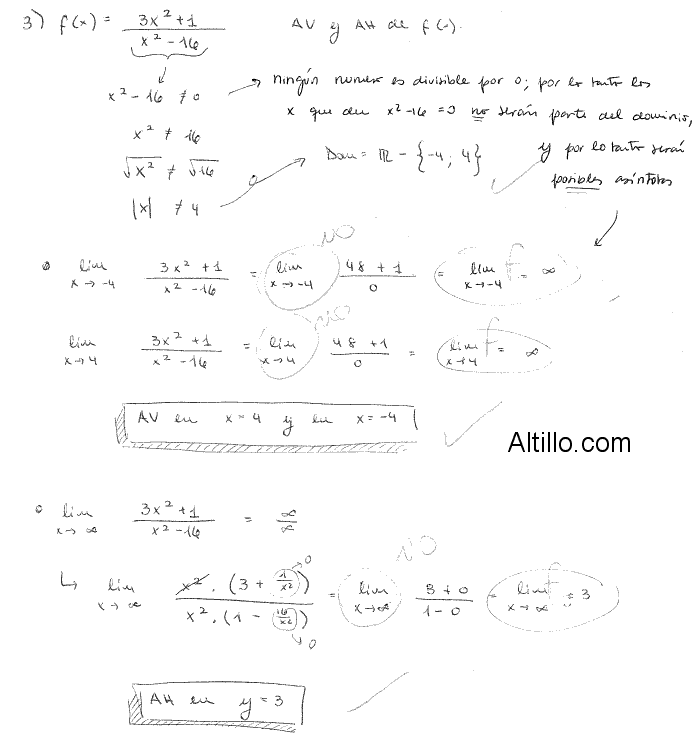 3) f(x) = (3x² + 1)/(x² - 16) AV y AH de f(x).
x² - 16 ≠ 0 → ningún numero es divisible por 0; por lo tanto los
x² ≠ 16 x que den x² - 16 = 0 no serán parte del dominio,
√x² ≠ √16 Dom = ℝ - {-4; 4} y por lo tanto serán
|x| ≠ 4 posibles asíntotas
NO
lim x→-4 (3x² + 1)/(x² - 16) = lim x→-4 (48 + 1)/0 = lim x→-4 f = ∞
NO
lim x→4 (3x² + 1)/(x² - 16) = lim x→4 (48 + 1)/0 = lim x→4 f = ∞
AV en x = 4 y en x = -4
Altillo.com
lim x→∞ (3x² + 1)/(x² - 16) = ∞/∞
NO
↳ lim x→∞ x².(3 + 1/x²)/x².(1 - 16/x²) = lim x→∞ (3 + 0)/(1 - 0) = lim x→∞ f = 3
→0
→0
AH en y = 3